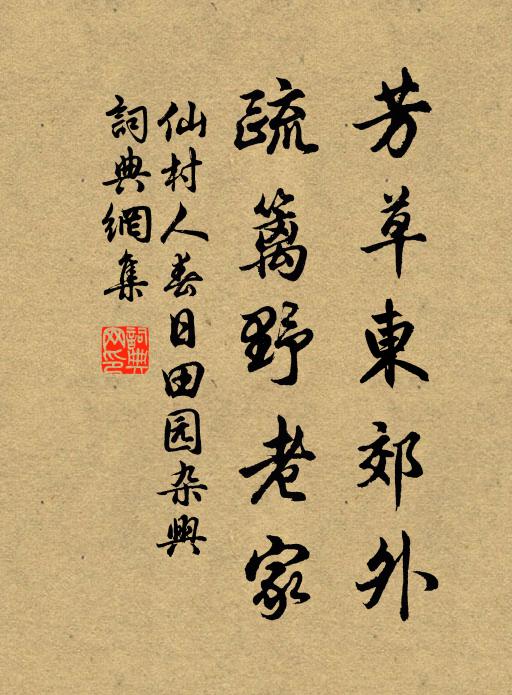 芳草東郊外
疏籬野老家
仙村人春日田园杂興
詞典網集
詞典网印